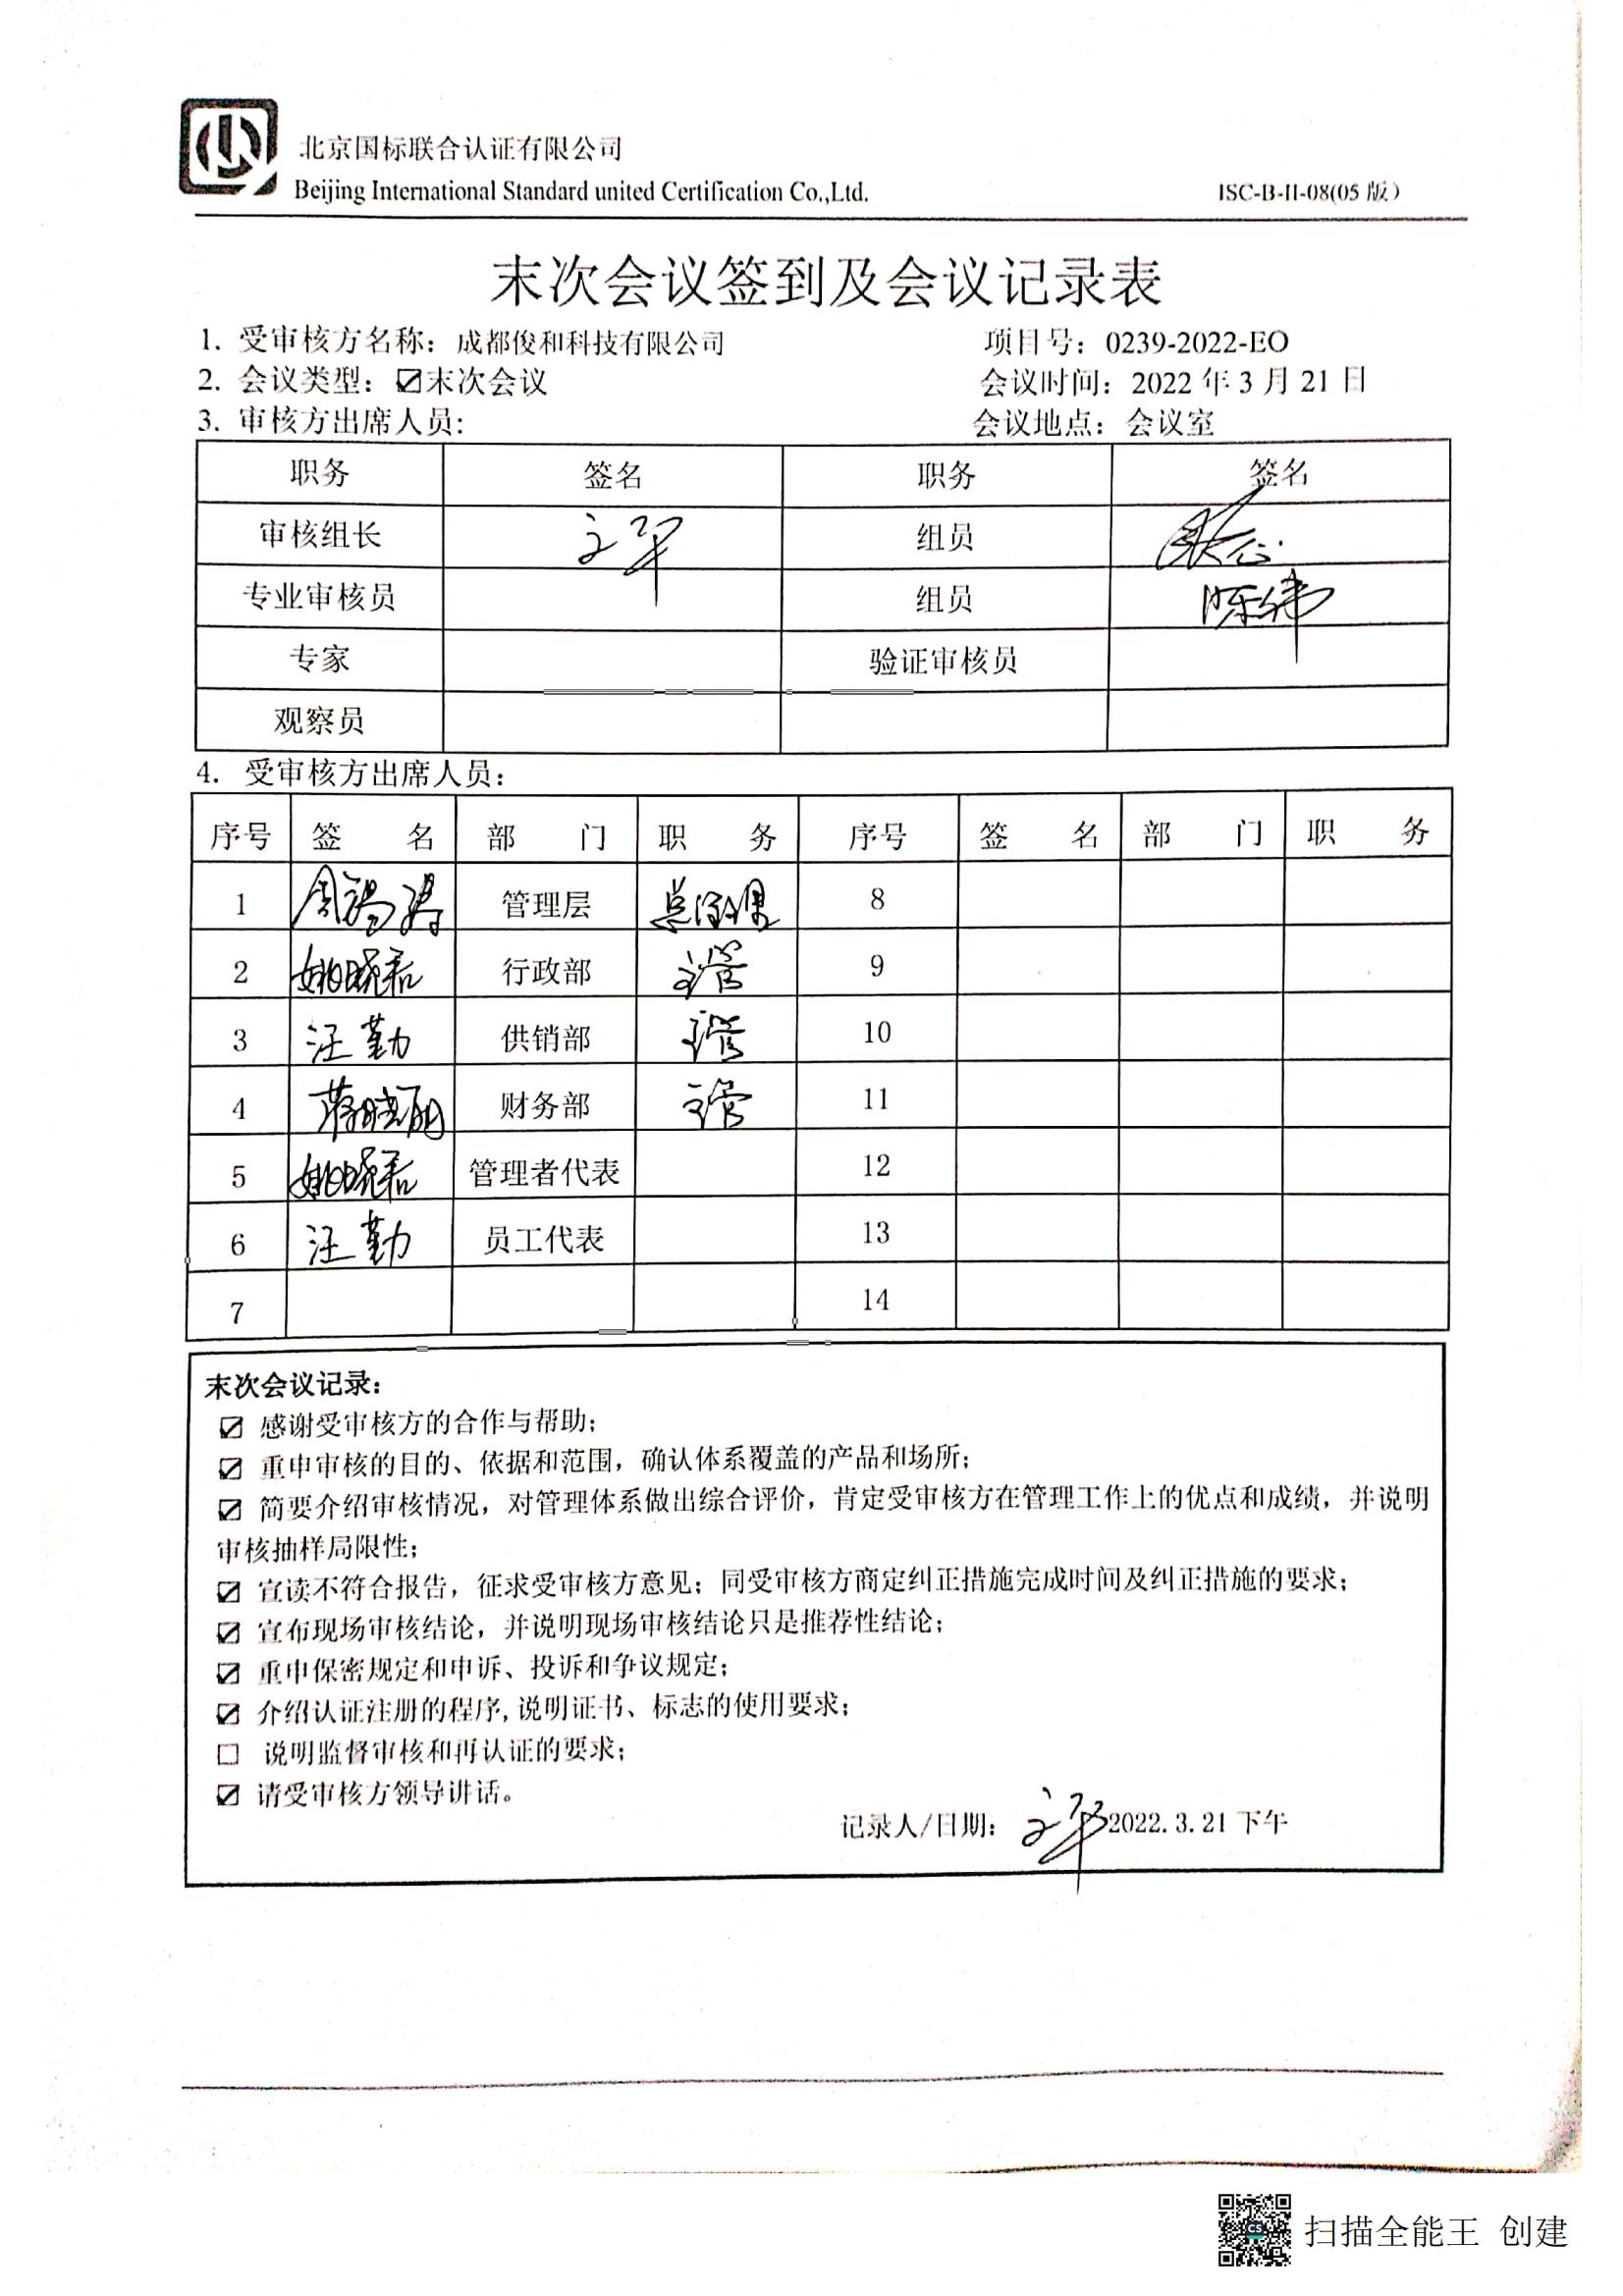 北京国标联合认证有限公司
Beijing International Standard united Certification Co.,Ltd.
ISC-B-II-08(05 版)
末次会议签到及会议记录表
1. 受审核方名称：成都俊和科技有限公司 项目号：0239-2022-EO
2. 会议类型：☑末次会议 会议时间：2022 年 3 月 21 日
3. 审核方出席人员: 会议地点：会议室
职务 签名 职务 签名
审核组长 文平 组员
专业审核员 组员 陈伟
专家 验证审核员
观察员
4. 受审核方出席人员：
序号 签 名 部 门 职 务 序号 签 名 部 门 职 务
1 管理层 总经理 8
2 姚晓君 行政部 主管 9
3 汪勤 供销部 主管 10
4 蒋晓丽 财务部 主管 11
5 姚晓君 管理者代表 12
6 汪勤 员工代表 13
7 14
末次会议记录：
☑ 感谢受审核方的合作与帮助；
☑ 重申审核的目的、依据和范围，确认体系覆盖的产品和场所；
☑ 简要介绍审核情况，对管理体系做出综合评价，肯定受审核方在管理工作上的优点和成绩，并说明
审核抽样局限性；
☑ 宣读不符合报告，征求受审核方意见；同受审核方商定纠正措施完成时间及纠正措施的要求；
☑ 宣布现场审核结论，并说明现场审核结论只是推荐性结论；
☑ 重申保密规定和申诉、投诉和争议规定；
☑ 介绍认证注册的程序,说明证书、标志的使用要求；
☐ 说明监督审核和再认证的要求；
☑ 请受审核方领导讲话。
记录人/日期：文平 2022.3.21 下午
扫描全能王 创建